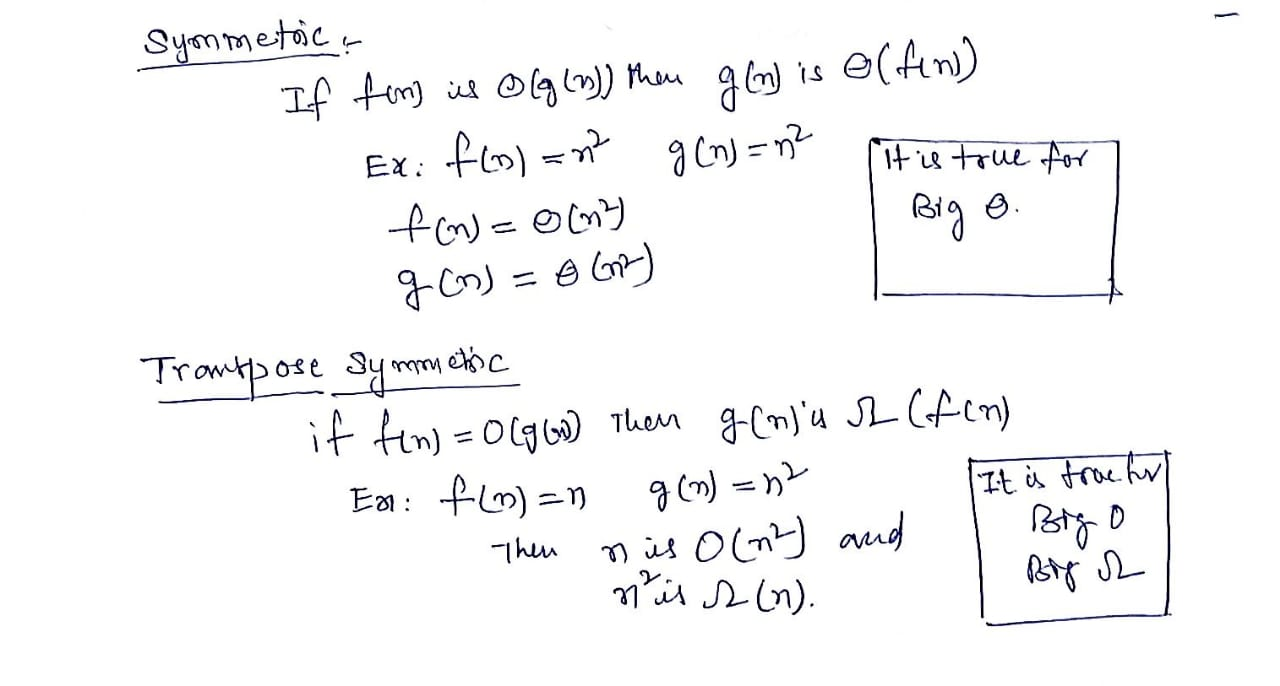 Symmetric :-
If f(n) is Θ(g(n)) then g(n) is Θ(f(n))
Ex: f(n) = n² g(n) = n²
f(n) = Θ(n²)
g(n) = Θ(n²)
It is true for
Big Θ.
Transpose Symmetric
if f(n) = O(g(n)) Then g(n) is Ω(f(n)
Ex: f(n) = n g(n) = n²
Then n is O(n²) and
n² is Ω(n).
It is true for
Big O
Big Ω